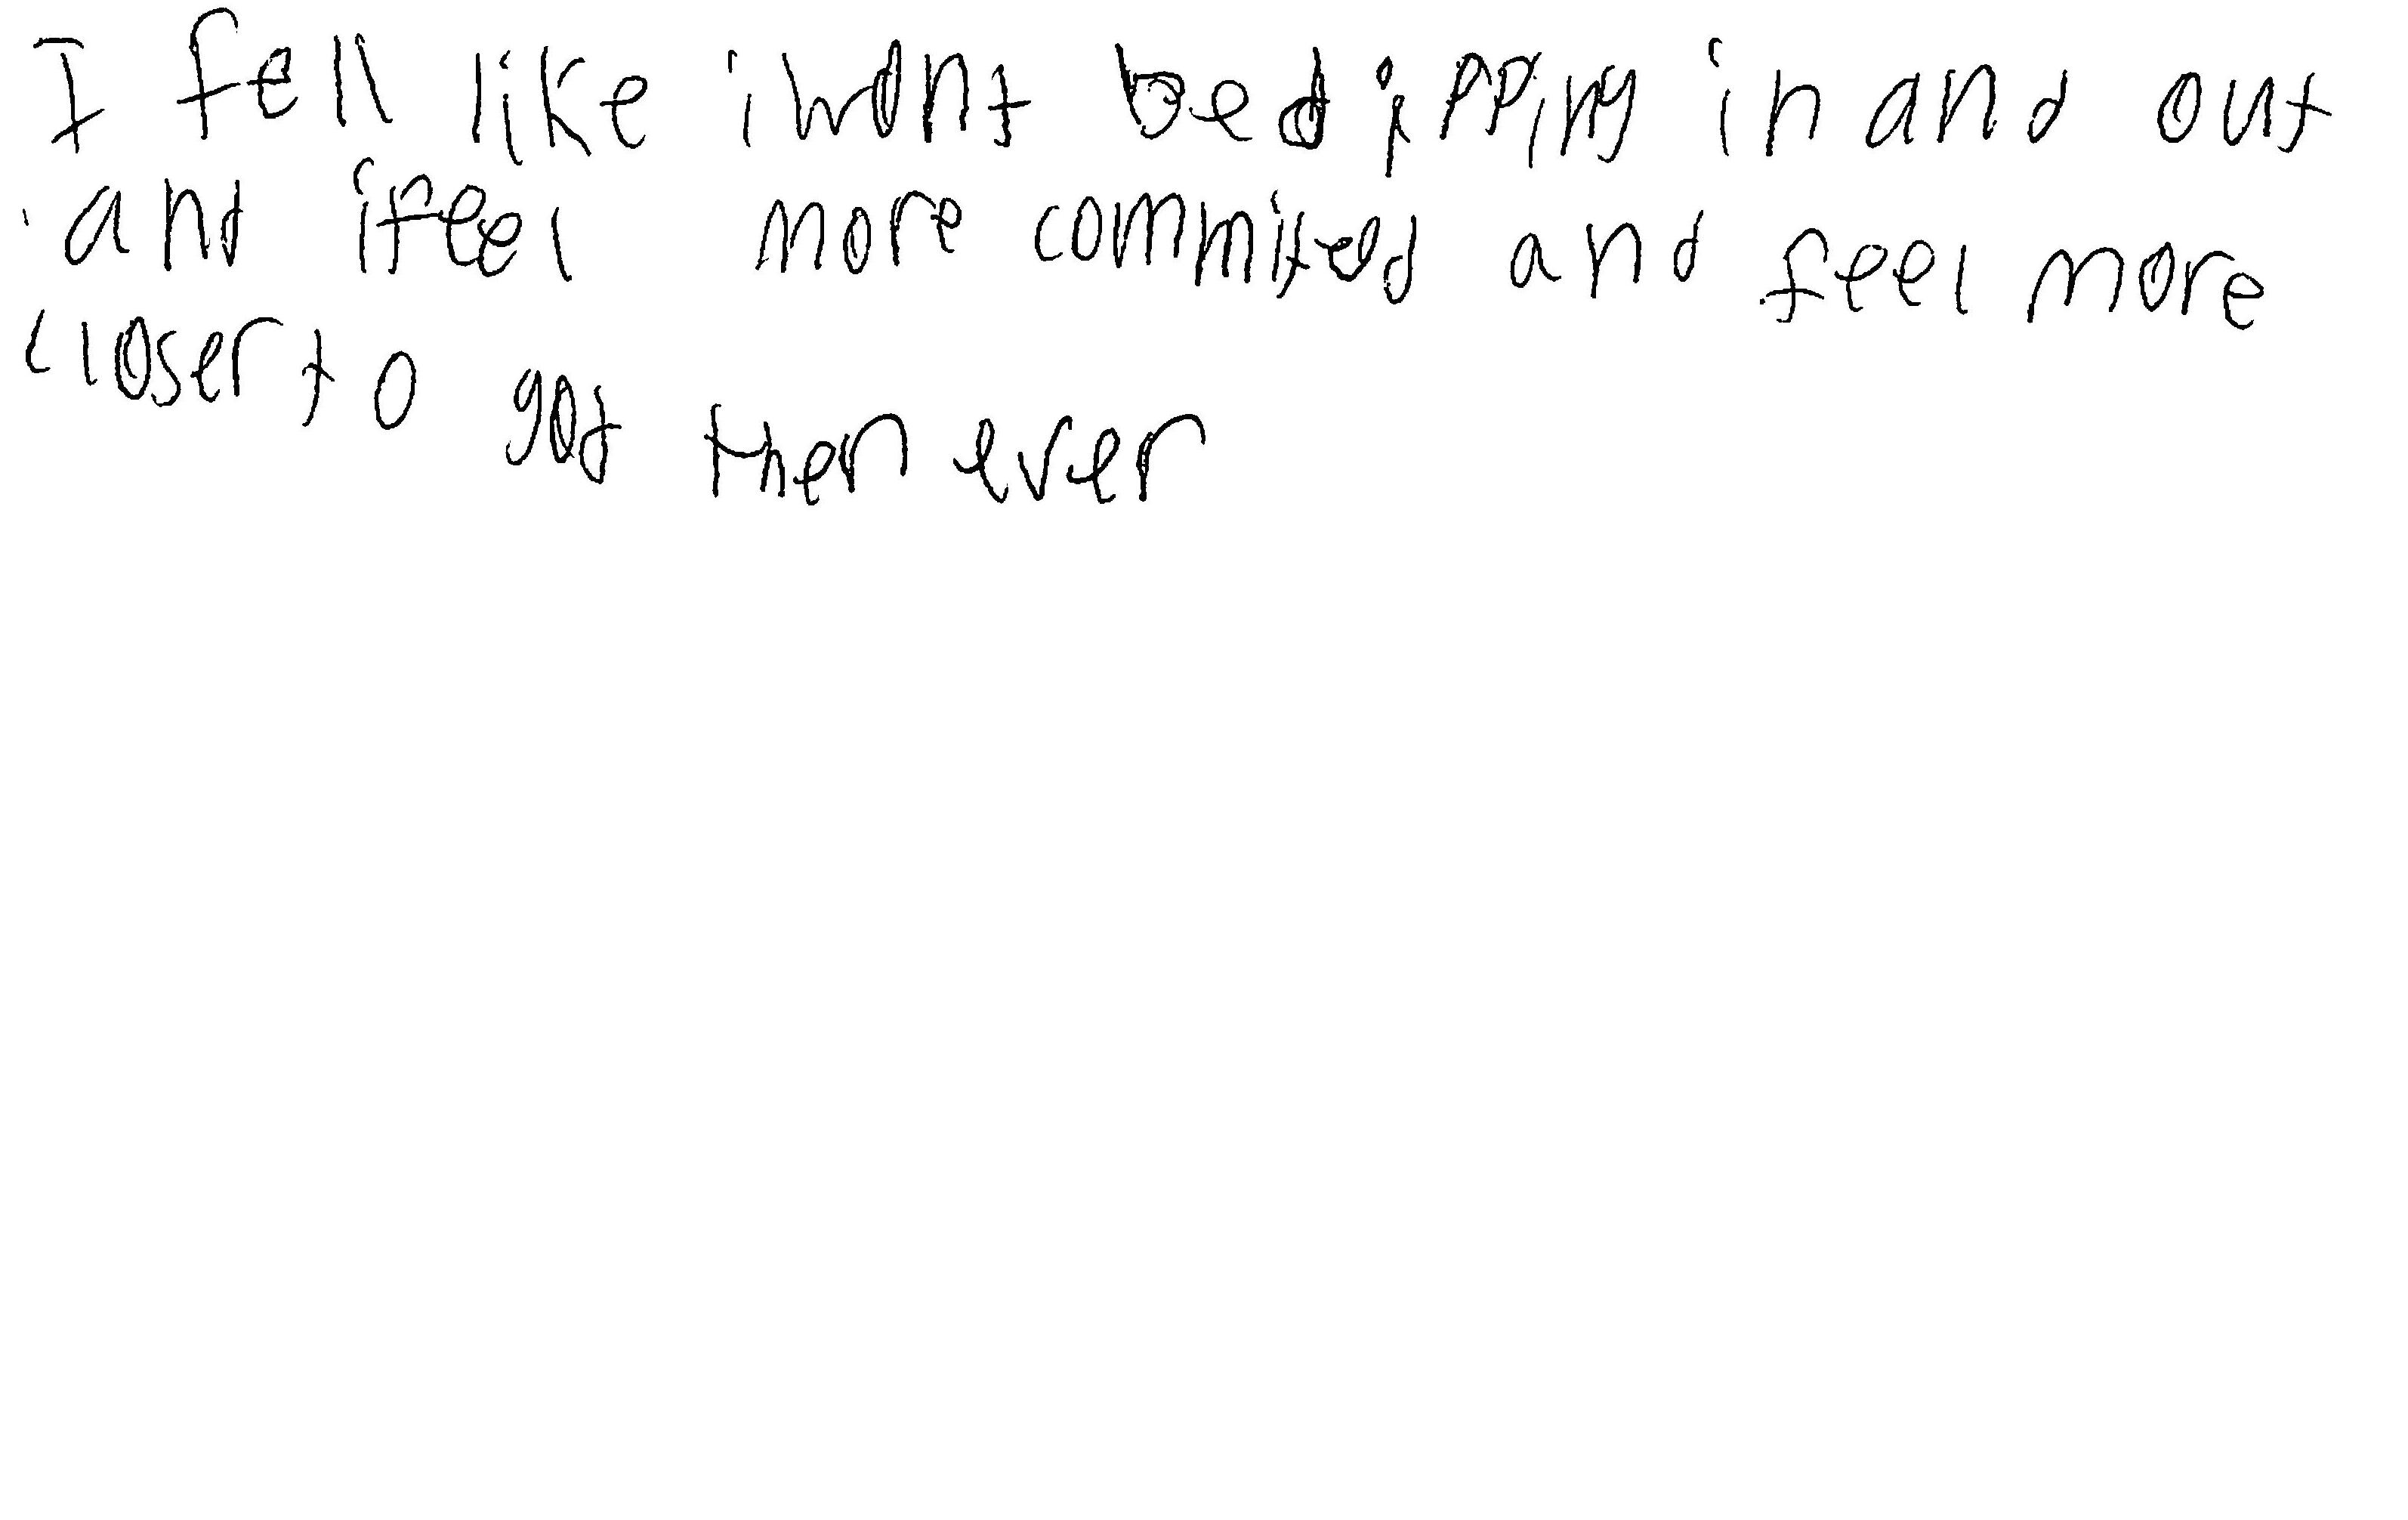 I fell like i wont be dipping in and out
and i feel more commited and feel more
closer to god then ever